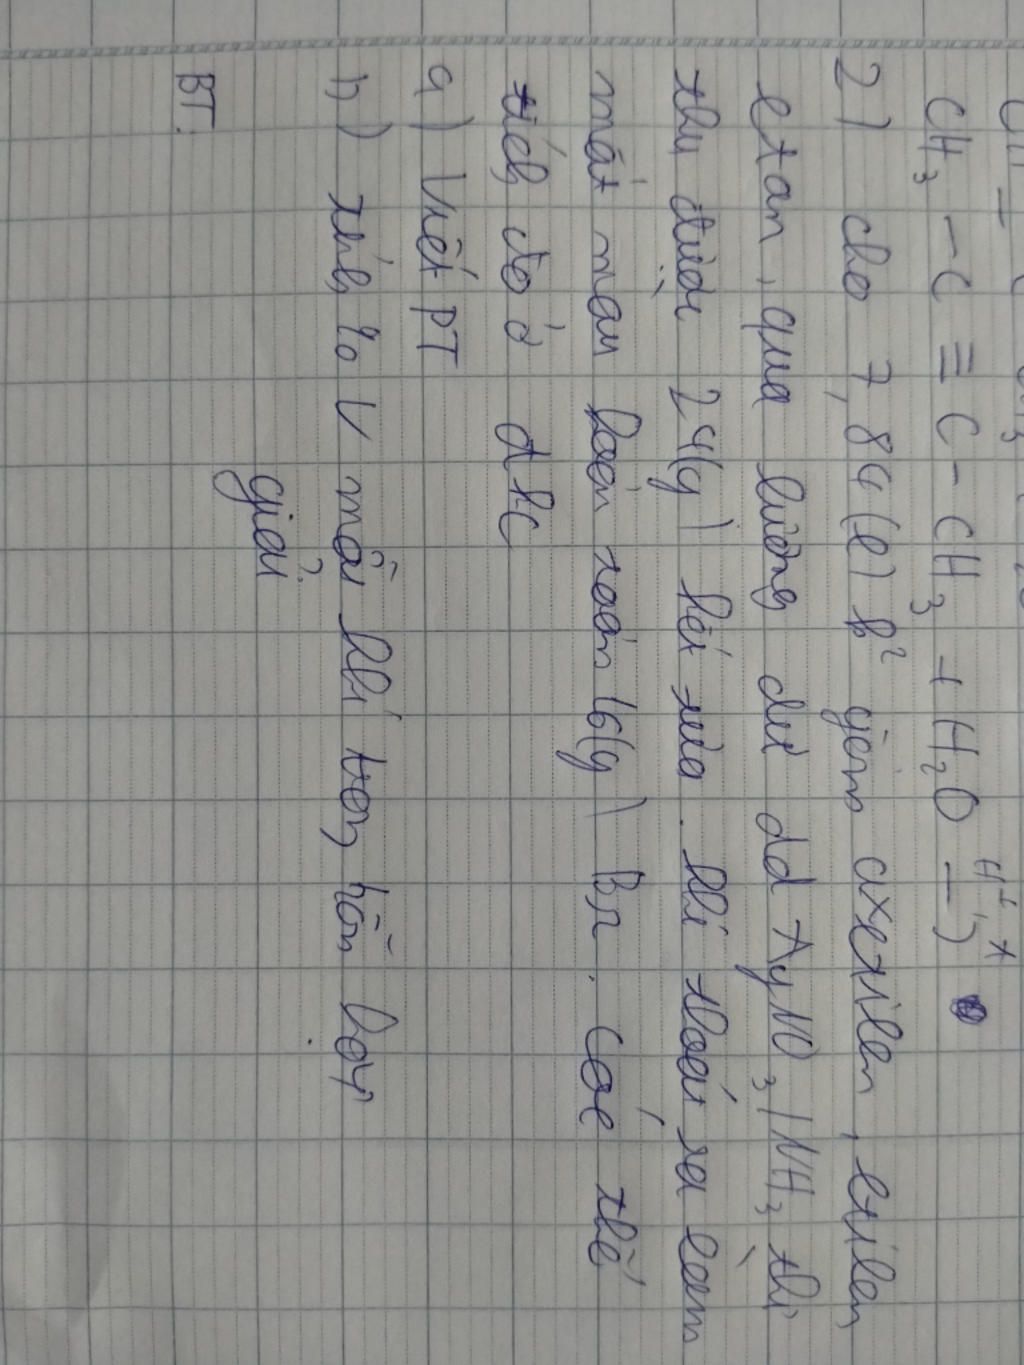 CH₃ - C ≡ C - CH₃ + H₂O →
H⁺ t
2) cho 7,84 (l) h² gồm axetilen, etilen,
etan, qua lượng dư dd AgNO₃/NH₃ thì
thu được 24(g) kết tủa. khí thoát ra làm
mất màu hoàn toàn 16(g) Br₂. Các thể
tích đo ở đkc
a) Viết PT
b) tính % V mỗi khí trong hỗn hợp
giải
BT: